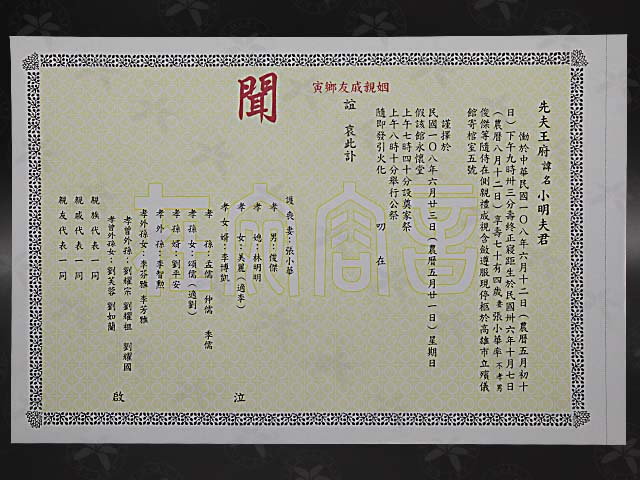 先夫王府 諱名 小明夫君
慟於中華民國一〇八年六月十二日（農曆五月初十
日）下午九時卅三分壽終正寢距生於民國卅六年十月七日
（農曆八月十二日）享壽七十有四歲妻張小華率 不孝男
俊傑等隨侍在側親禮成視含斂遵服現停柩於高雄市立殯儀
館寄棺室五號
謹擇於
民國一〇八年六月廿三日（農曆五月廿一日）星期日
假該館永懷堂
上午七時四十分設奠家祭
上午八時十分舉行公祭
隨即發引火化 叨 在
姻親戚友鄉寅
誼 哀此訃
聞
護喪妻：張小華
孝 男：俊傑
孝 媳：林明明
孝 女：美麗（適李）
孝女婿：李博凱
孝 孫：孟儒 仲儒 季儒
孝孫女：頌儒（適劉）
孝孫婿：劉平安
孝外孫：李智勲
孝外孫女：李芬雅 李芳雅
孝曾外孫：劉耀宗 劉耀祖 劉耀國
孝曾外孫女：劉芙蓉 劉如蘭
親族代表一同
親戚代表一同
親友代表一同
泣
啟